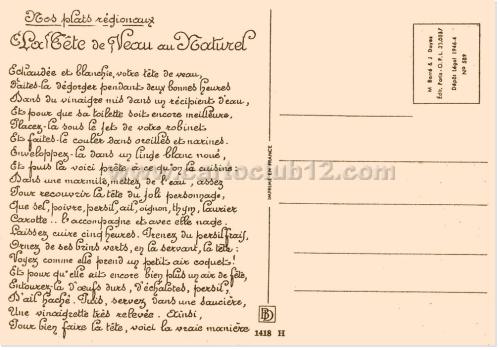 Nos plats régionaux
La Tête de Veau au Naturel
Echaudée et blanchie, votre tête de veau,
Faites-la dégorger pendant deux bonnes heures
Dans du vinaigre mis dans un récipient d'eau,
Et pour que sa toilette soit encore meilleure,
Placez-la sous le jet de votre robinet
Et faites-le couler dans oreilles et narines.
Enveloppez-la dans un linge blanc noué,
Et puis la voici prête pour qu'on la cuisine :
Dans une marmite, mettez de l'eau, assez
Pour recouvrir la tête du joli personnage,
Que sel, poivre, persil, ail, oignon, thym, laurier
Carotte.. l'accompagne et avec elle nage.
Laissez cuire cinq heures. Prenez du persil frais,
Ornez de ses brins verts, en la servant, la tête :
Voyez comme elle prend un petit air coquet !
Et pour qu'elle ait encore bien plus un air de fête,
Entourez-la d'œufs durs, d'échalotes, persil,
D'ail haché. Puis, servez dans une saucière,
Une vinaigrette très relevée. Ainsi,
Pour bien faire la tête, voici la vraie manière
1418 H
BD
IMPRIMÉ EN FRANCE
M. Barré & J. Dayez
Édit. Paris - O.P.L. 31,0087
Dépôt Légal 1946-4
N° 589
www.cartoclub12.com